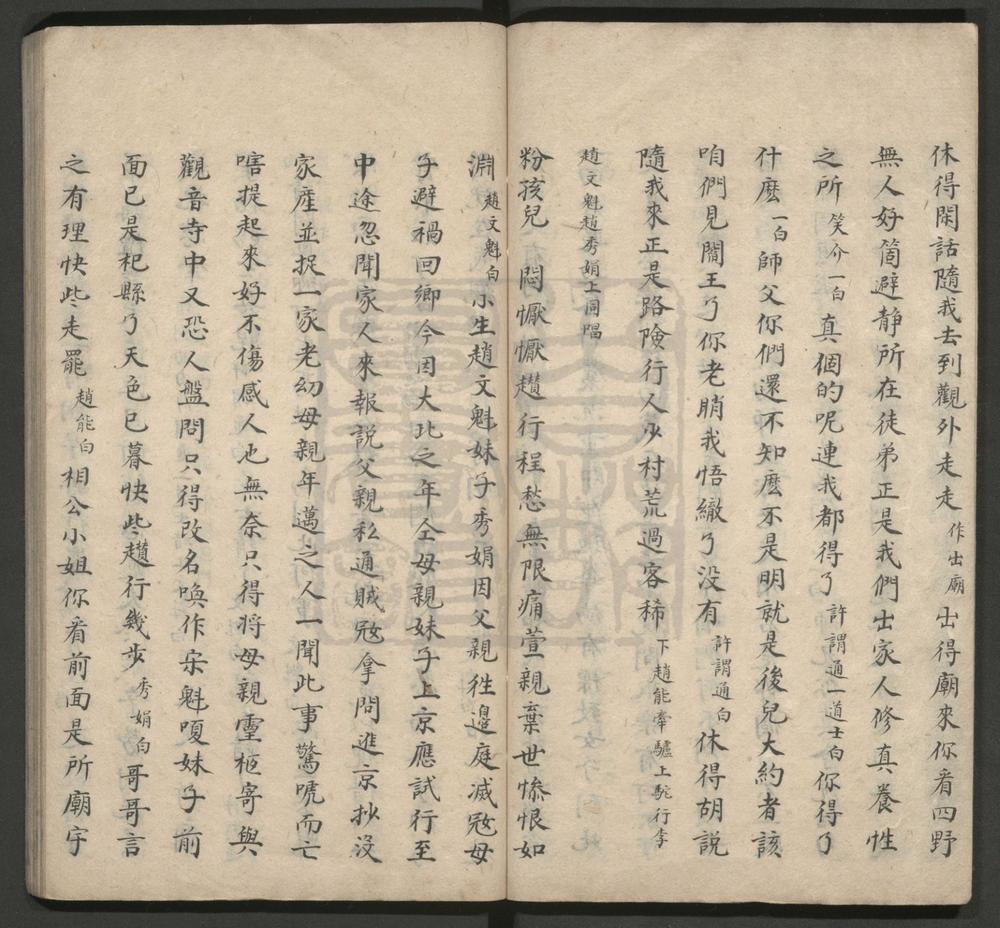 休得閑話隨我去到觀外走走作出廟出得廟來你看四野
無人好箇避靜所在徒弟正是我們出家人修真養性
之所笑介一白真個的呢連我都得了許謂通一道士白你得了
什麽一白師父你們還不知麽不是明就是後兒大約者該
咱們見閻王了你老腊我悟繳了没有許謂通白休得胡説
隨我來正是路險行人少村荒過客稀下趙能牽驢上駝行李
趙文魁趙秀娟上同唱
粉孩兒悶懨懨趲行程愁無限痛萱親棄世慘恨如
淵趙文魁白小生趙文魁妹子秀娟因父親徃邊庭滅㓂母
子避禍回鄉今因大比之年仝母親妹子上京應試行至
中途忽聞家人來報説父親私通賊㓂拿問進京抄没
家産並捉一家老幼母親年邁之人一聞此事驚唬而亡
嗐提起來好不傷感人也無奈只得將母親靈柩寄與
觀音寺中又恐人盤問只得改名喚作宋魁嗄妹子前
面已是杞縣了天色已暮快些趲行幾步秀娟白哥哥言
之有理快些走罷趙能白相公小姐你看前面是所廟宇